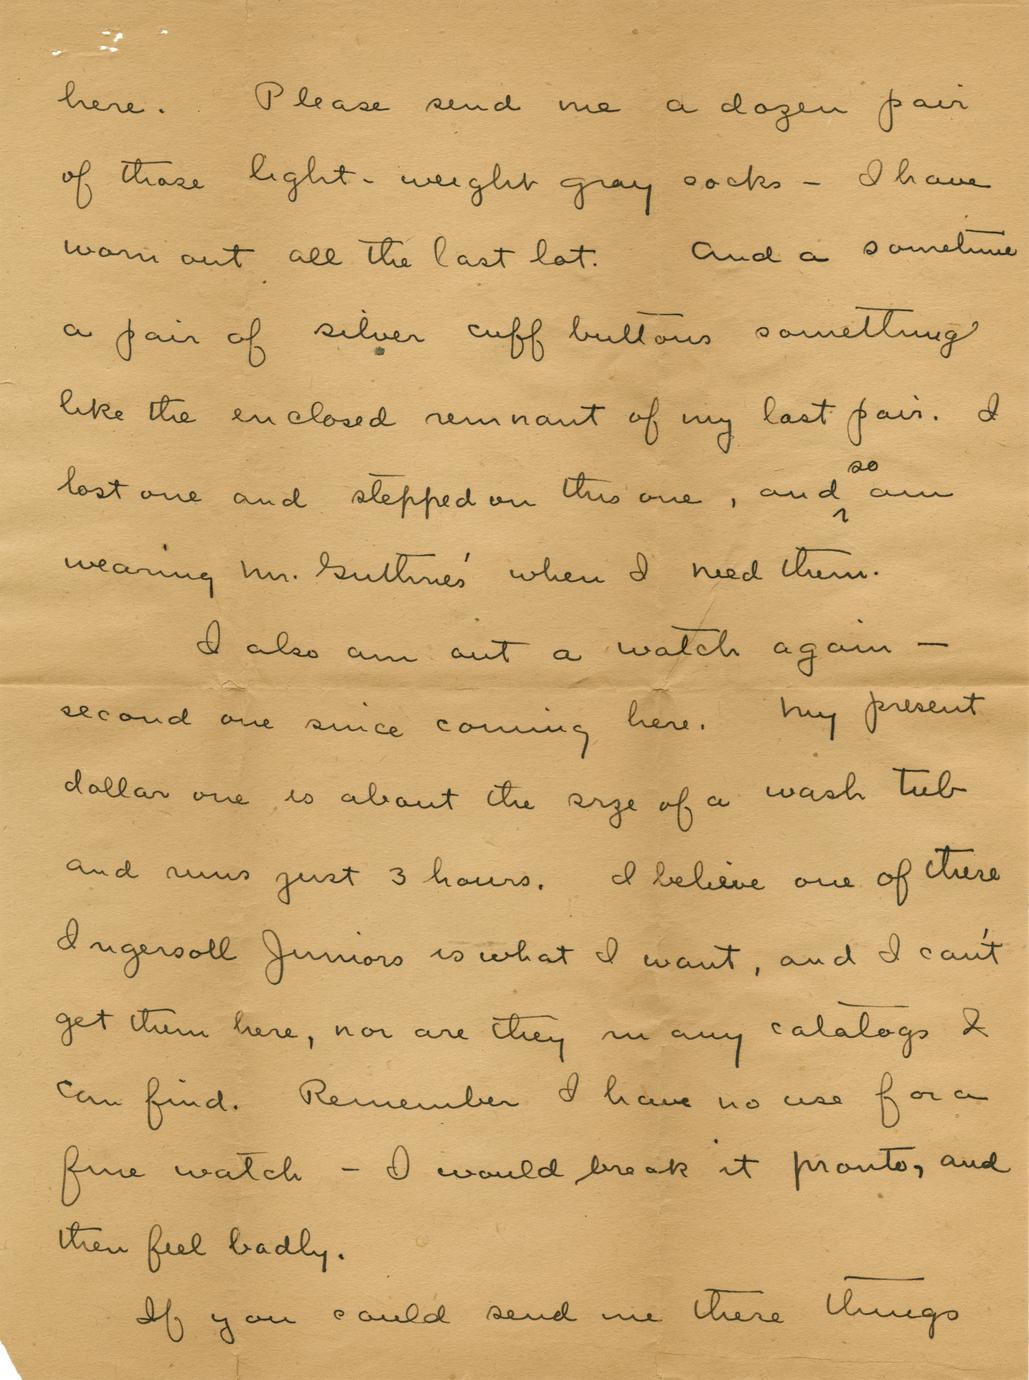 here. Please send me a dozen pair
of those light-weight gray socks - I have
worn out all the last lot. And a sometime
a pair of silver cuff buttons something
like the enclosed remnant of my last pair. I
lost one and stepped on this one, and so am
wearing Mr. Guthrie's when I need them.
I also am out a watch again -
second one since coming here. My present
dollar one is about the size of a wash tub
and runs just 3 hours. I believe one of these
Ingersoll Juniors is what I want, and I can't
get them here, nor are they in any catalogs I
can find. Remember I have no use for a
fine watch - I would break it pronto, and
then feel badly.
If you could send me these things